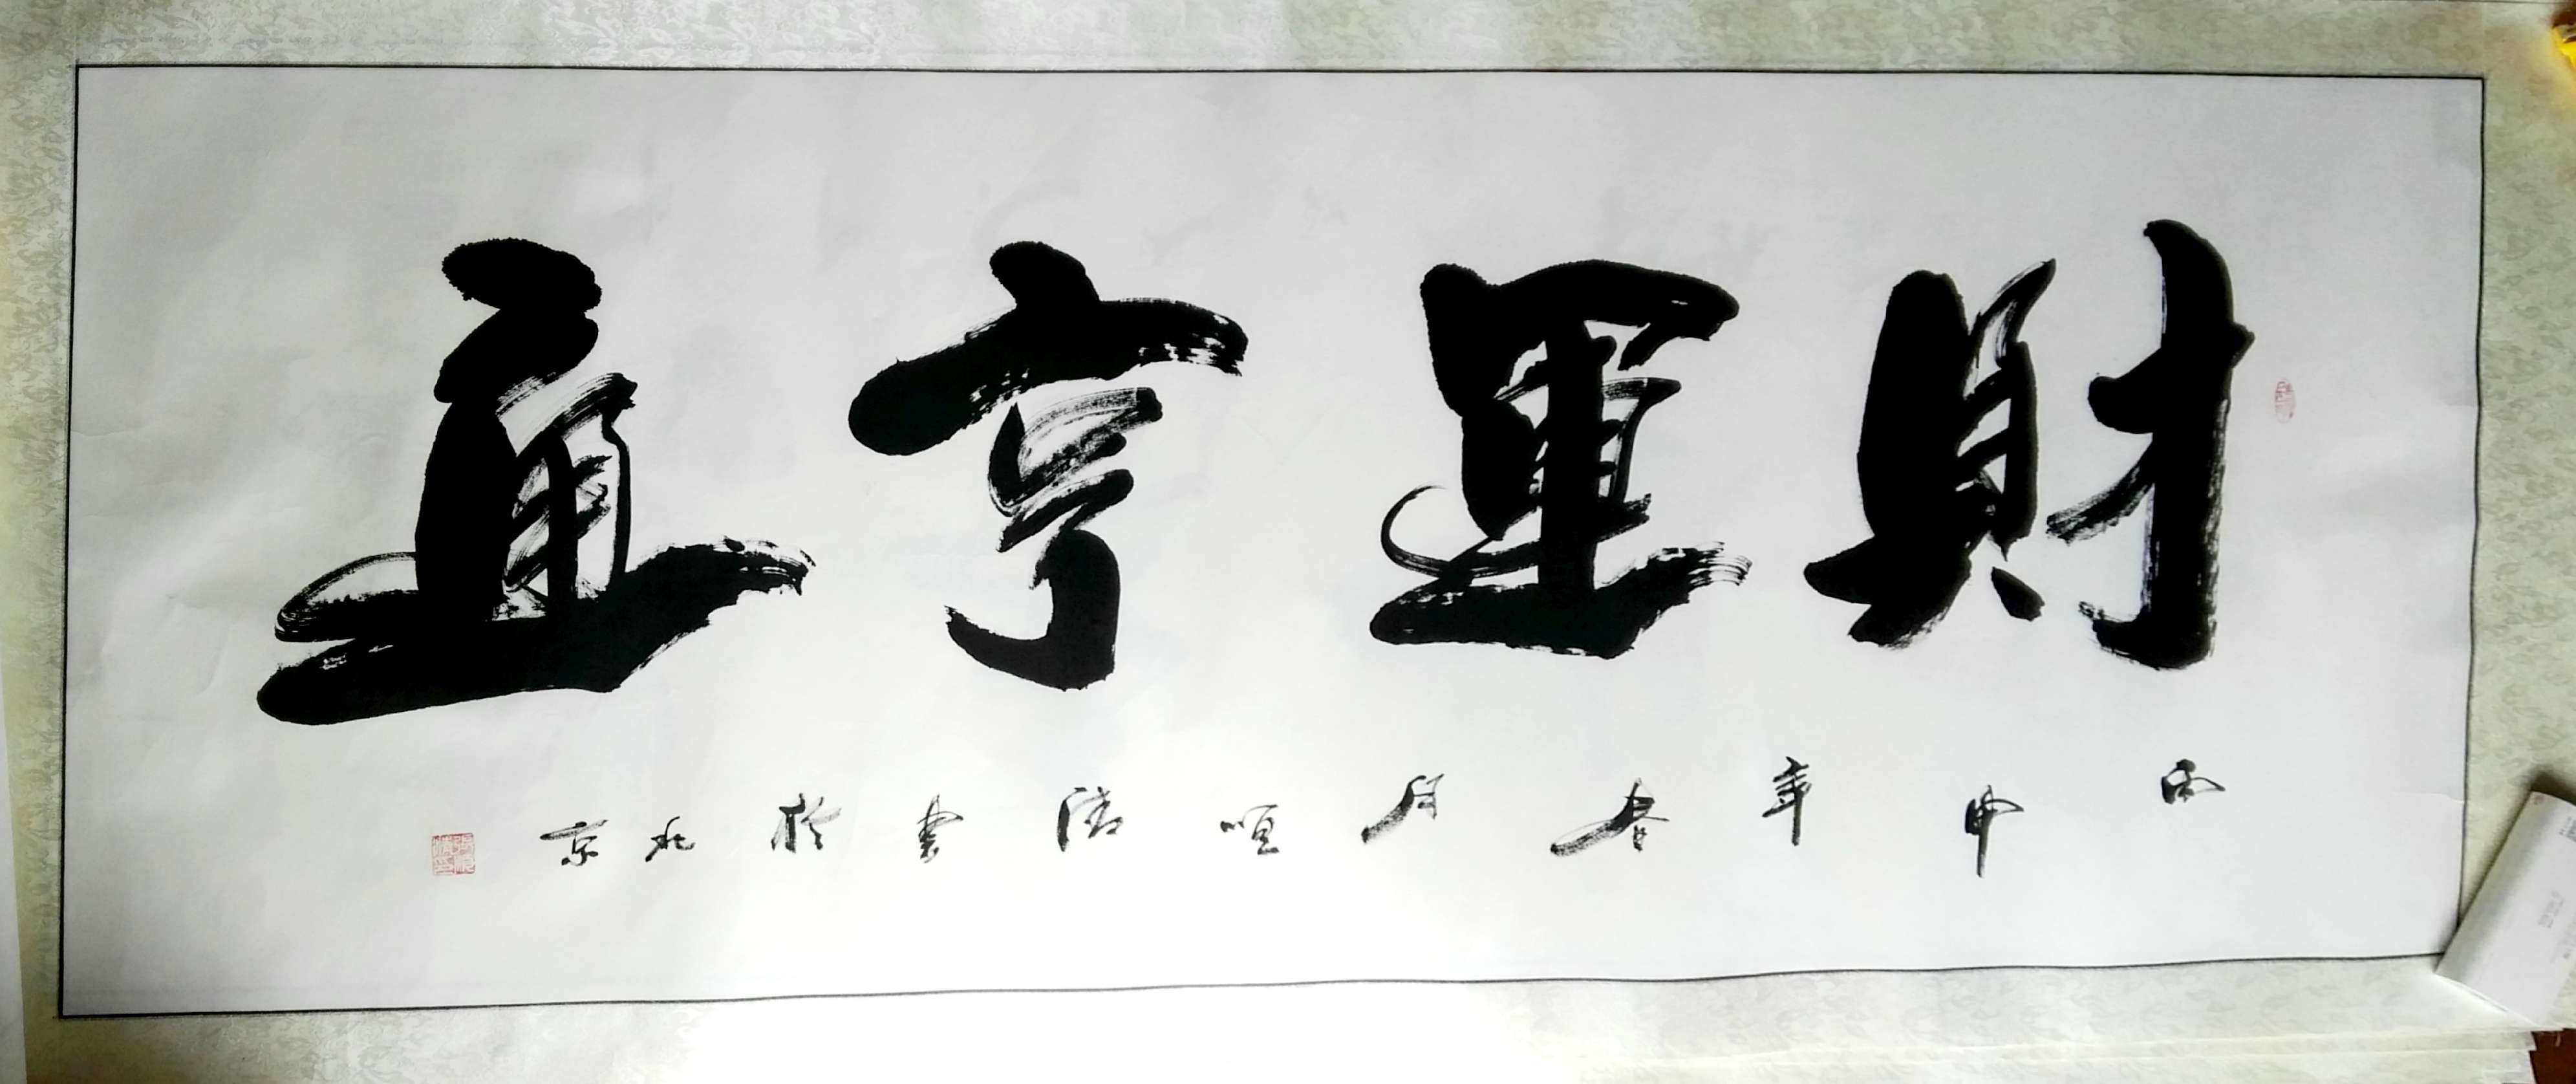 財運亨通
丙申年春月順清書於北京